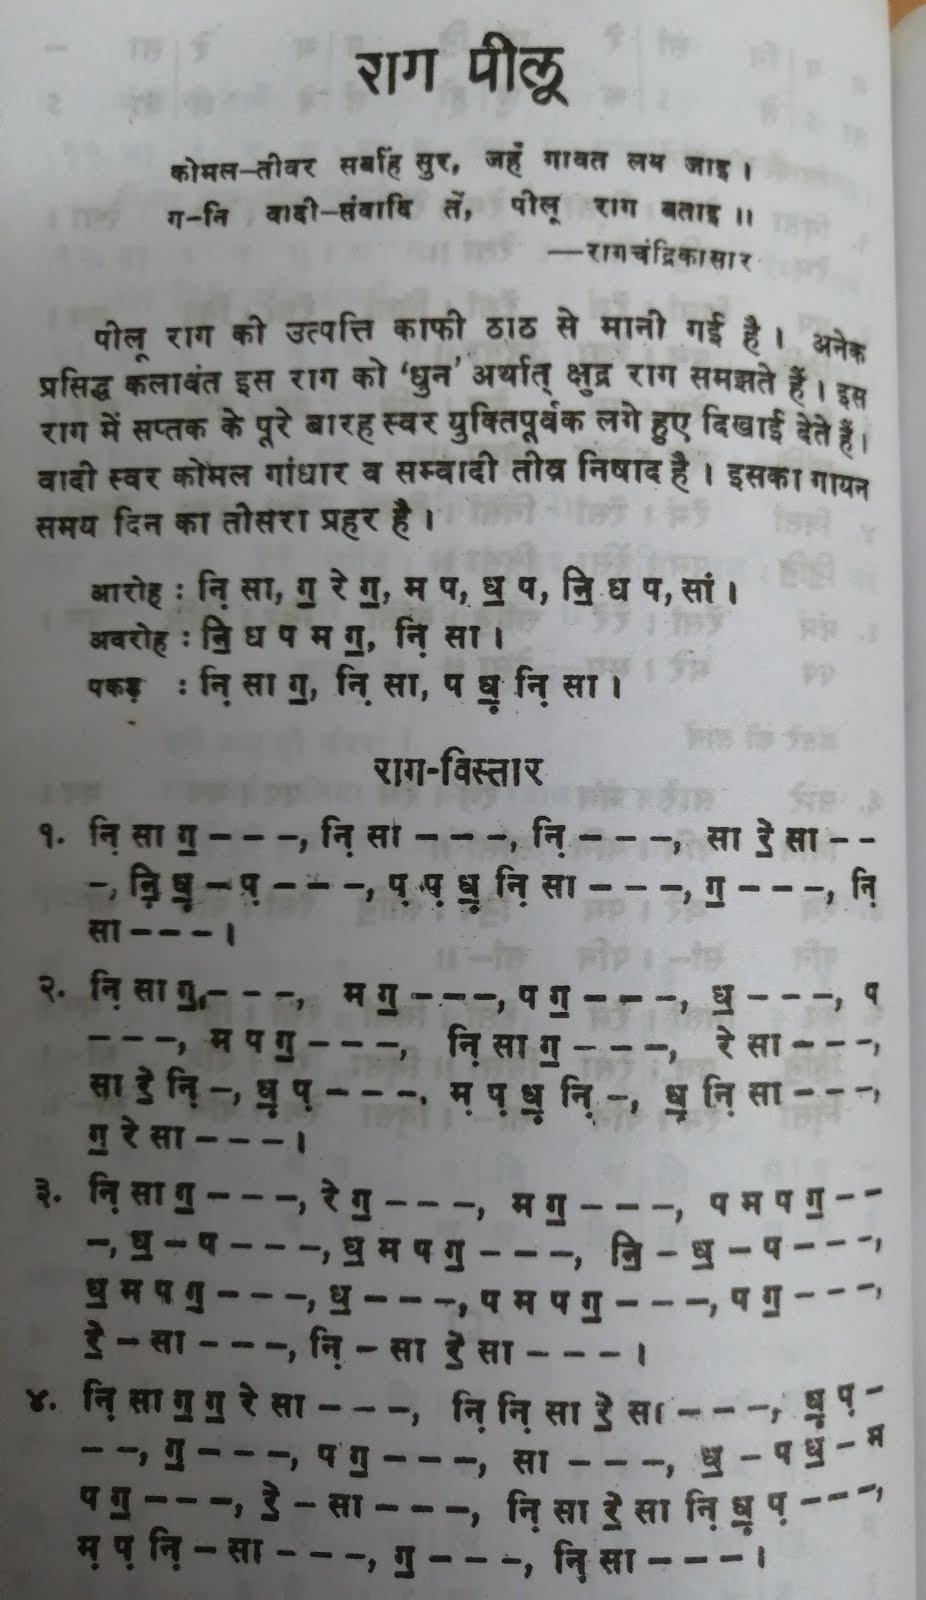 राग पीलू
कोमल-तीवर सर्बाहं सुर, जहँ गावत लय जाइ ।
ग-नि वादी-संवादि तें, पीलू राग बताइ ॥
—रागचंद्रिकासार
पीलू राग की उत्पत्ति काफी ठाठ से मानी गई है । अनेक
प्रसिद्ध कलावंत इस राग को ‘धुन’ अर्थात् क्षुद्र राग समझते हैं । इस
राग में सप्तक के पूरे बारह स्वर युक्तिपूर्वक लगे हुए दिखाई देते हैं।
वादी स्वर कोमल गांधार व सम्वादी तीव्र निषाद है । इसका गायन
समय दिन का तीसरा प्रहर है ।
आरोह : नि़ सा, ग॒ रे ग॒, म प, ध॒ प, नि॒ ध प, सां ।
अवरोह : नि॒ ध प म ग॒, नि़ सा ।
पकड़ : नि़ सा ग॒, नि़ सा, प ध़॒ नि़ सा ।
राग-विस्तार
१. नि़ सा ग॒ – – –, नि़ सा – – –, नि़ – – –, सा रे॒ सा – –
–, नि़॒ ध़॒ – प़ – – –, प़ प़ ध़॒ नि़ सा – – –, ग॒ – – –, नि़
सा – – – ।
२. नि़ सा ग॒, – – –, म ग॒ – – –, प ग॒ – – –, ध॒ – – –, प
– – –, म प ग॒ – – –, नि़ सा ग॒ – – –, रे सा – – –,
सा रे॒ नि़ –, ध़॒ प़ – – –, म़ प़ ध़॒ नि़ –, ध़॒ नि़ सा – – –,
ग॒ रे सा – – – ।
३. नि़ सा ग॒ – – –, रे ग॒ – – –, म ग॒ – – –, प म प ग॒ – –
–, ध॒ – प – – –, ध॒ म प ग॒ – – –, नि॒ – ध॒ – प – – –,
ध॒ म प ग॒ – – –, ध॒ – – –, प म प ग॒ – – –, प ग॒ – – –,
रे॒ – सा – – –, नि़ – सा रे॒ सा – – – ।
४. नि़ सा ग॒ ग॒ रे सा – – –, नि़ नि़ सा रे॒ सा – – –, ध़॒ प़ –
– –, ग॒ – – –, प ग॒ – – –, सा – – –, ध॒ – प ध॒ – म
प ग॒ – – –, रे॒ – सा – – –, नि़ सा रे॒ सा नि़ ध़॒ प़ – – –,
म़ प़ नि़ – सा – – –, ग॒ – – –, नि़ सा – – – ।